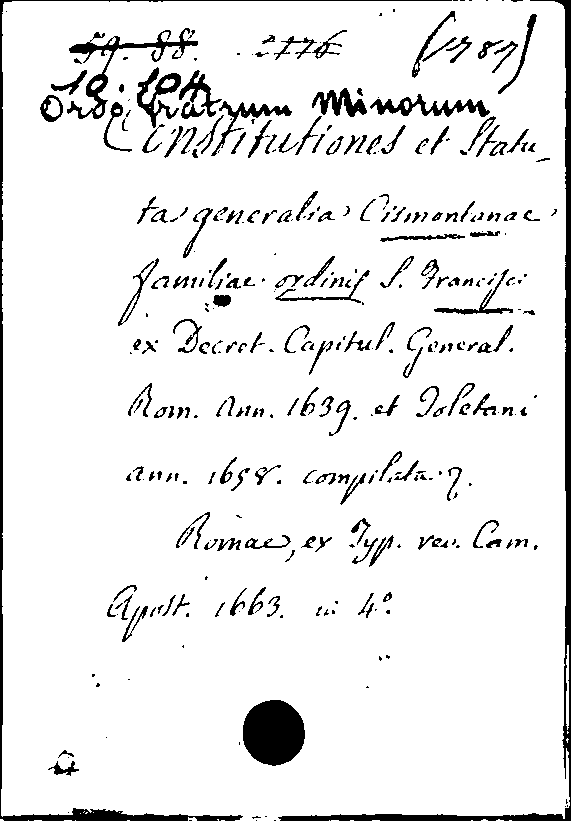 59. 88. 2776 (1787)
10. 104
Ordo Fratrum Minorum
Constitutiones et Statu-
ta generalia Cismontanae
familiae ordinis S. Francisci
ex Decret. Capitul. General.
Rom. Ann. 1639. et Toletani
ann. 1658. compilata
Romae, ex Typ. rev. Cam.
Apost. 1663. in 4°.